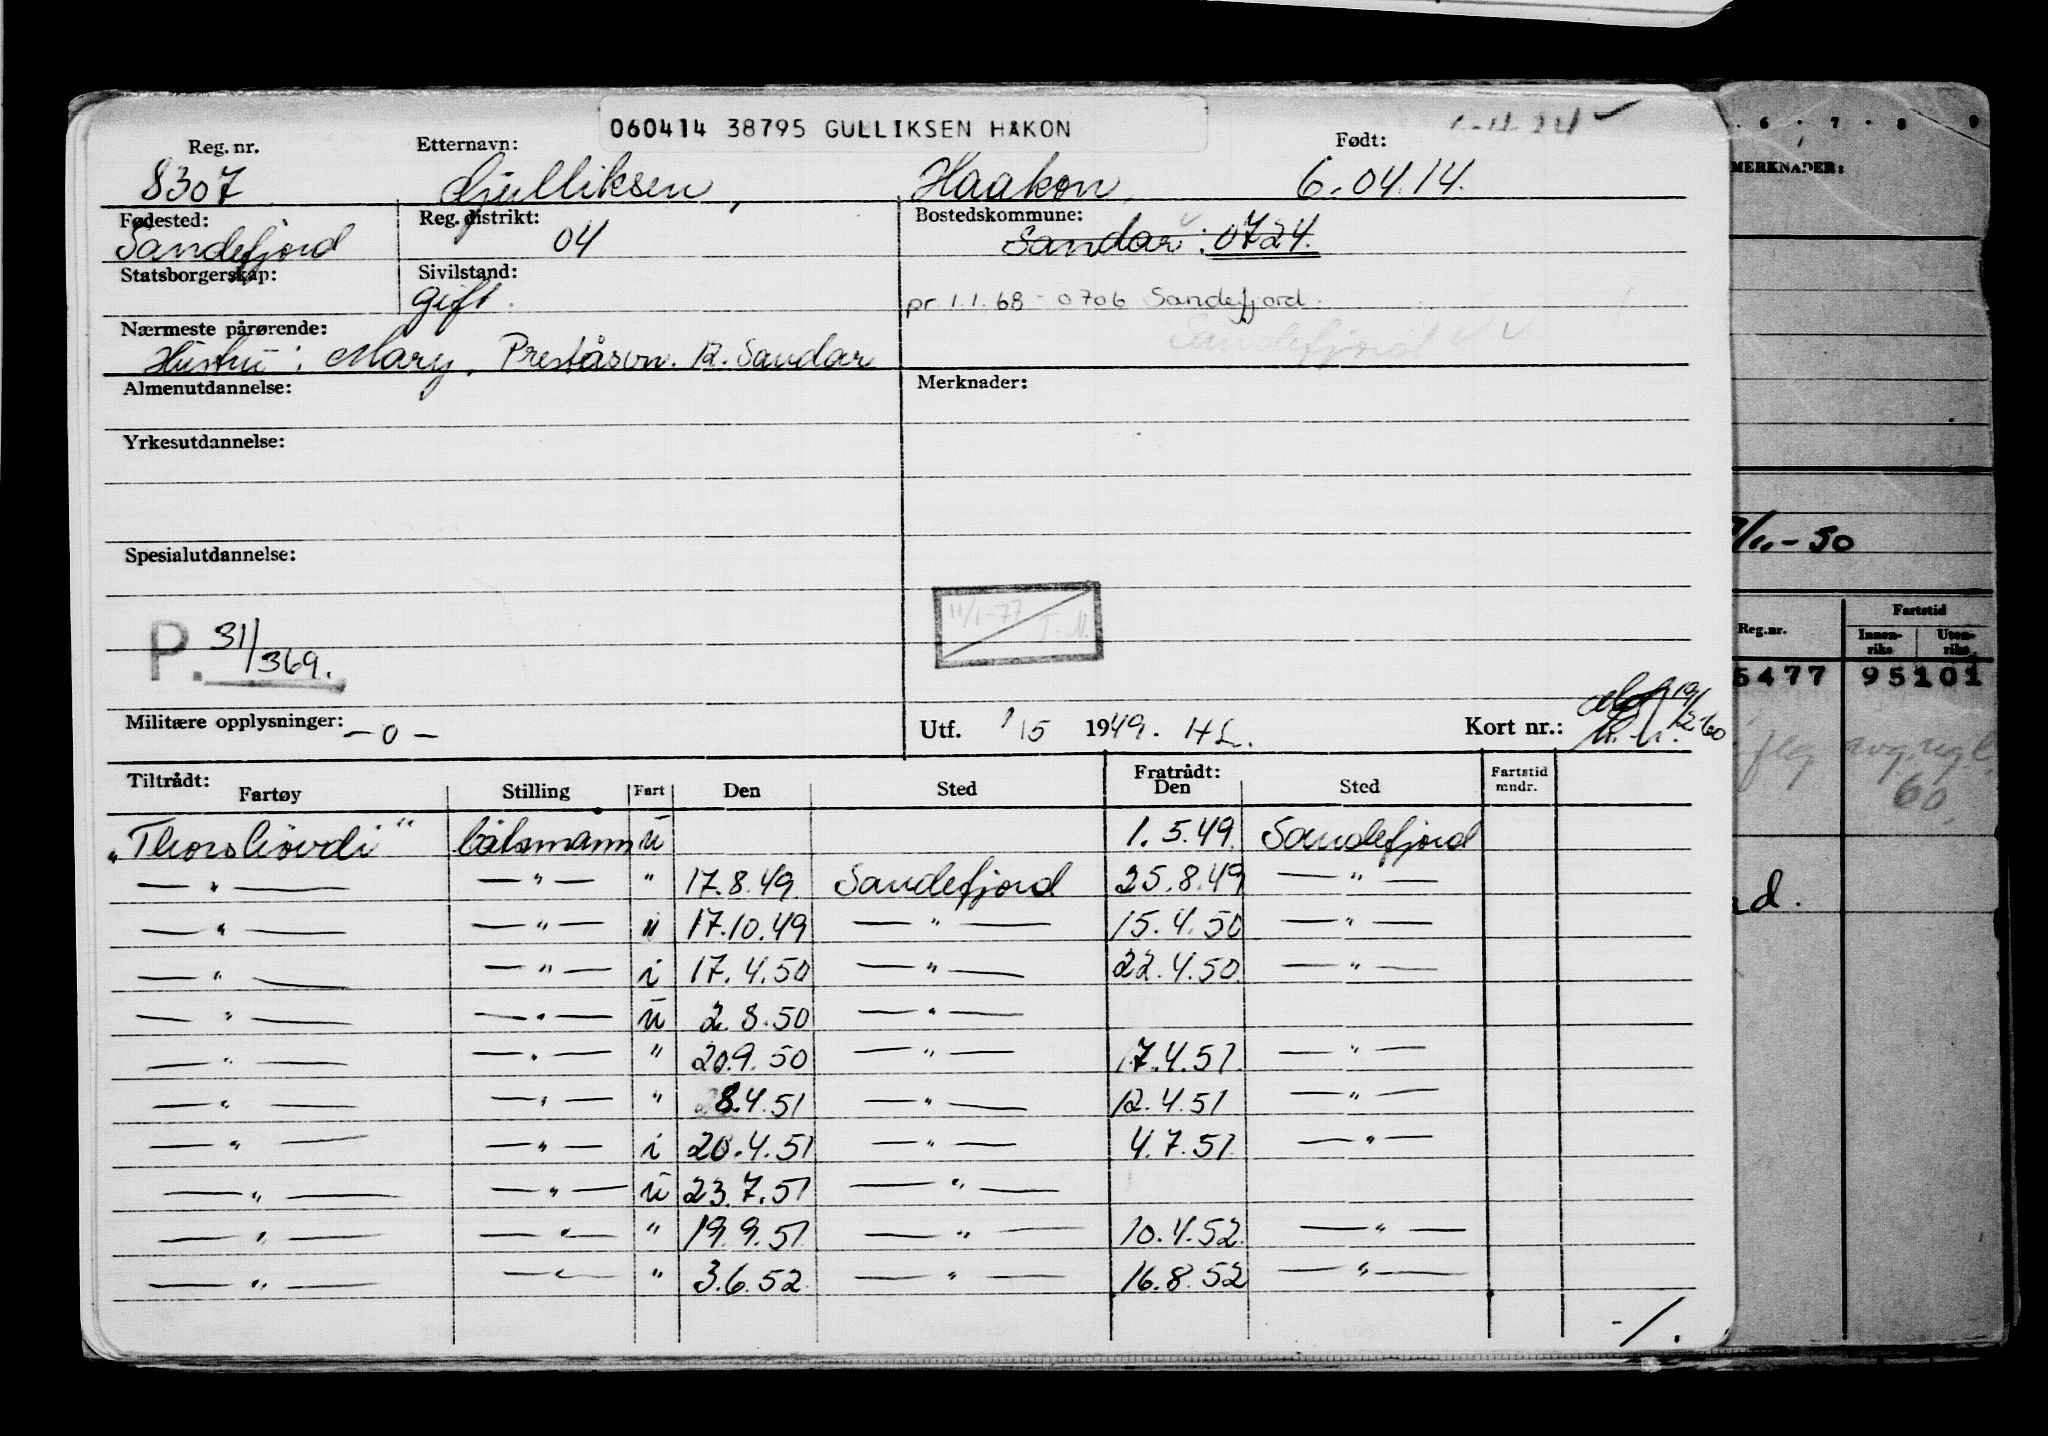 060414 38795 GULLIKSEN HÅKON
Reg. nr. Etternavn: Født:
8307 Gulliksen, Haakon, 6.04.14.
Fødested: Reg. distrikt: Bostedskommune:
Sandefjord 04 Sandar: 0724.
Statsborgerskap: Sivilstand:
gift. pr. 1.1.68 - 0706 Sandefjord.
Sandefjord
Nærmeste pårørende:
Hustru: Mary, Preståsvn. 12. Sandar
Almenutdannelse: Merknader:
Yrkesutdannelse:
Spesialutdannelse:
11/1-77 T.M.
P. 31/369.
Militære opplysninger: -0- Utf. 1/5 1949. HL. Kort nr.:
Tiltrådt: Fratrådt:
Fartøy Stilling Fart Den Sted Den Sted Fartstid mndr.
"Thorshövdi" båtsmann u 1.5.49. Sandefjord
— " — — " — " 17.8.49. Sandefjord 25.8.49 — " —
— " — — " — " 17.10.49 — " — 15.4.50 — " —
— " — — " — i 17.4.50 — " — 22.4.50. — " —
— " — — " — u 2.8.50 — " —
— " — — " — " 20.9.50 — " — 17.4.51. — " —
— " — — " — " 8.4.51 — " — 12.4.51 — " —
— " — — " — i 20.4.51 — " — 4.7.51. — " —
— " — — " — u 23.7.51 — " —
— " — — " — " 19.9.51 — " — 10.4.52. — " —
— " — — " — " 3.6.52. — " — 16.8.52 — " —
-/.
6 - 7 - 8 9
MERKNADER:
- 50
Fartstid
Reg.nr. Innenriks Utenriks
5477 95101
60.
d.